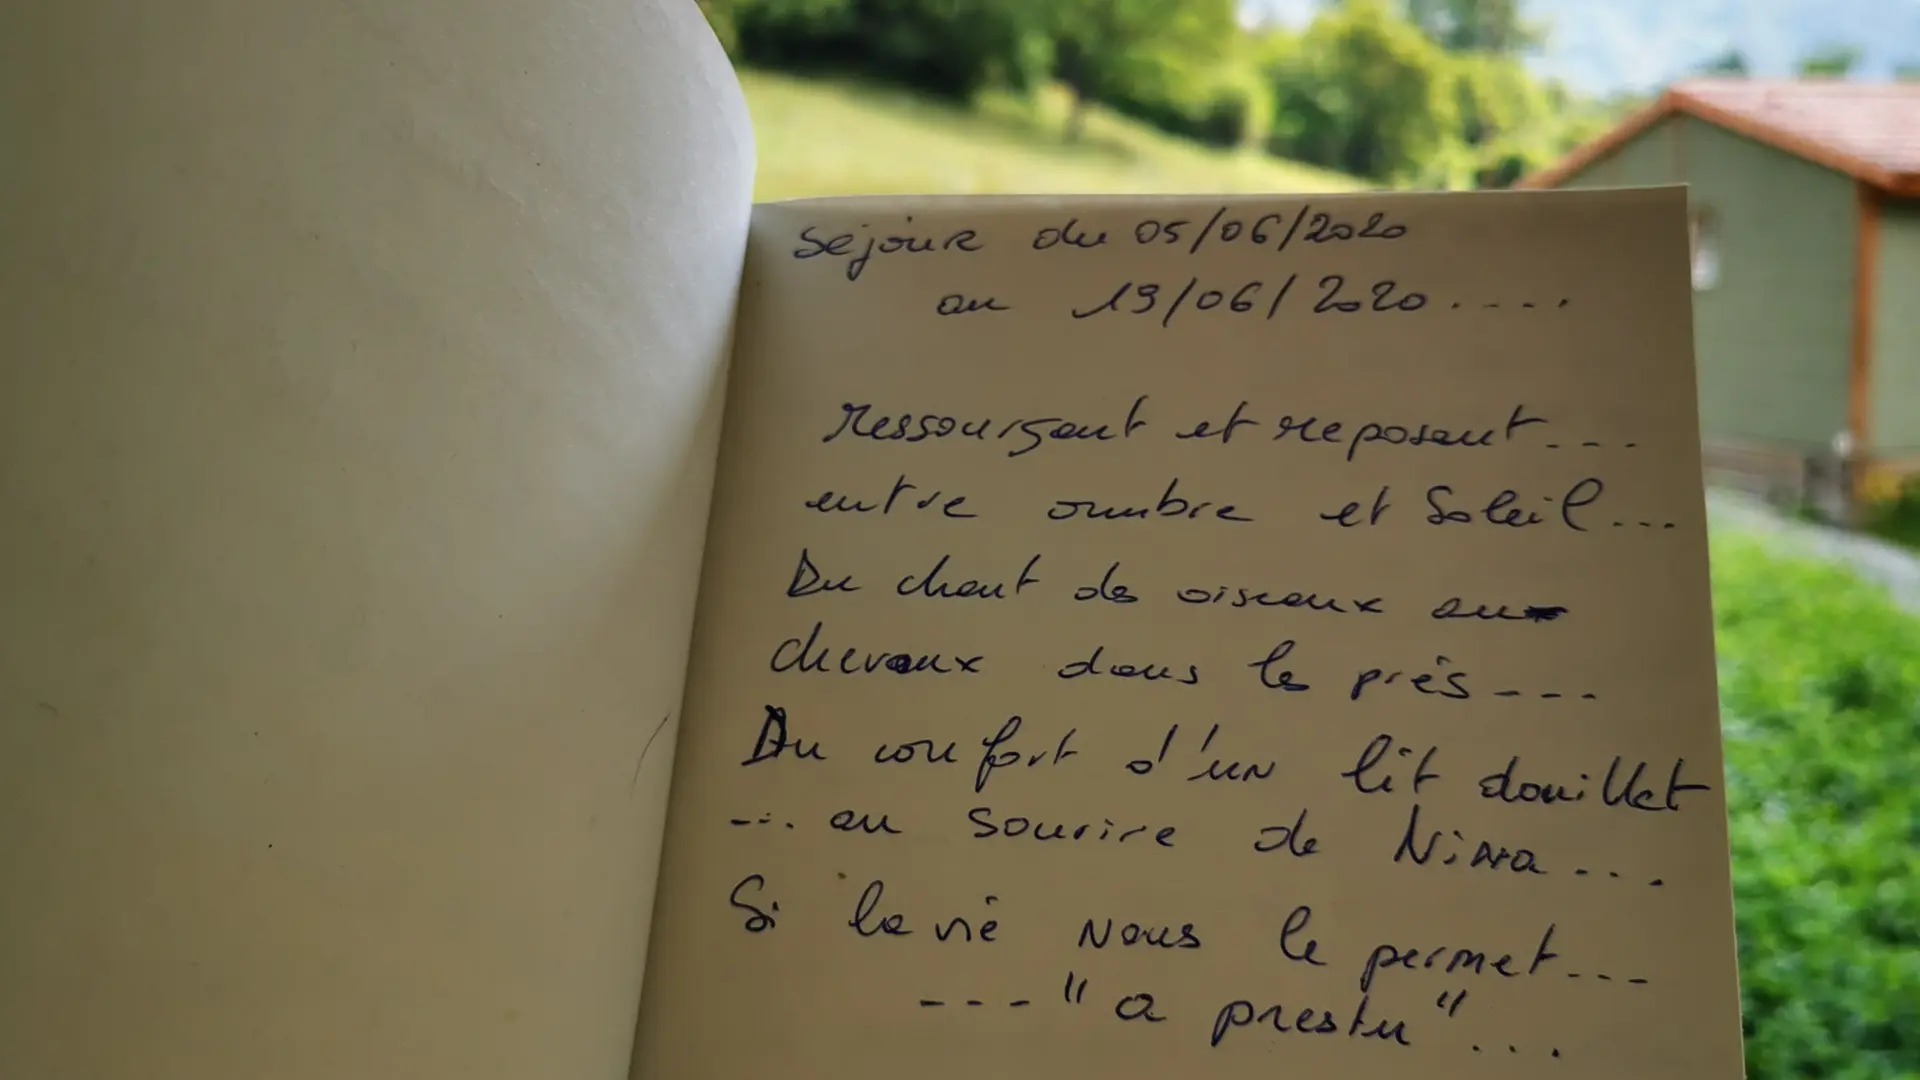 Séjour du 05/06/2020
au 19/06/2020....
Ressourçant et reposant....
entre ombre et Soleil...
Du chant des oiseaux au
chevaux dans les prés---
Du confort d'un lit douillet
... au sourire de Nina...
Si la vie nous le permet...
---"a prestu"...